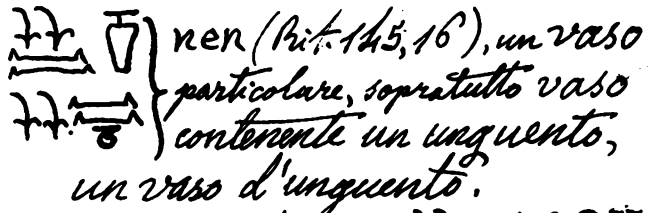 nen (Rit. 145, 16), un vaso
particolare, sopratutto vaso
contenente un unguento,
un vaso d'unguento.